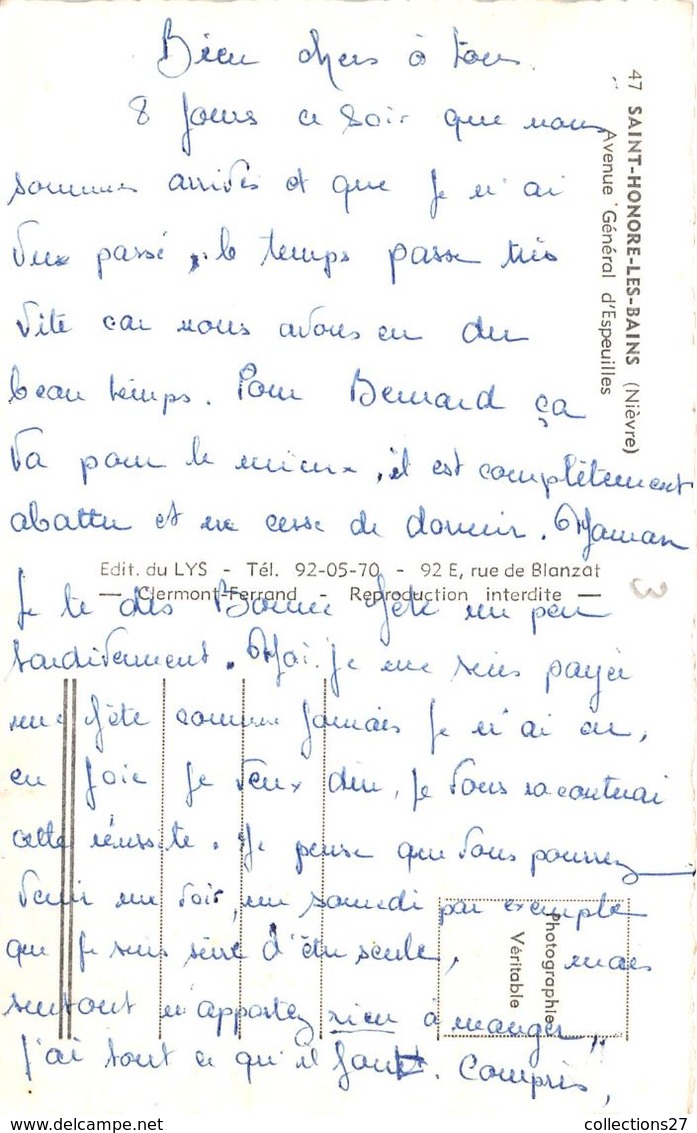 Bien chers à tous.
8 Jours ce Soir que nous
sommes arrivés et que je n'ai
peux passé, le temps passe très
vite car nous avons eu du
beau temps. Pour Bernard ça
va pour le mieux, il est complètement
abattu et ne cesse de dormir. Maman
Je te dis Bonne fête un peu
tardivement. Moi je me suis payée
une fête comme jamais je n'ai eu,
en joie je veux dire, je vous raconterai
cette réussite. Je pense que vous pourrez
venir me voir, un samedi par exemple
que je suis sûre d'être seule, mais
surtout n'apportez rien à manger,
j'ai tout ce qu'il faut. Compris,
47 SAINT-HONORE-LES-BAINS (Nièvre)
Avenue Général d'Espeuilles
Edit. du LYS - Tél. 92-05-70 - 92 E, rue de Blanzat
— Clermont-Ferrand - Reproduction interdite —
Photographie
Véritable
3
collections27